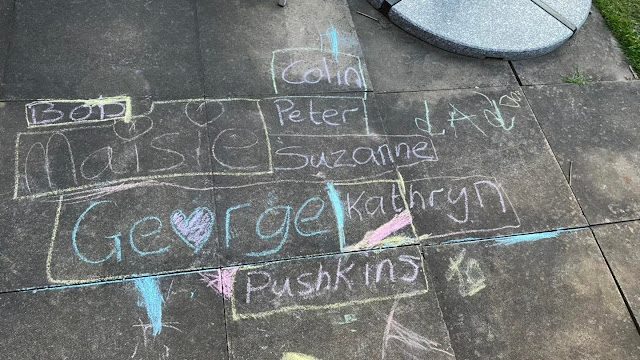 Colin
Bob
Peter
Maisie
Suzanne
George
Kathryn
Pushkins